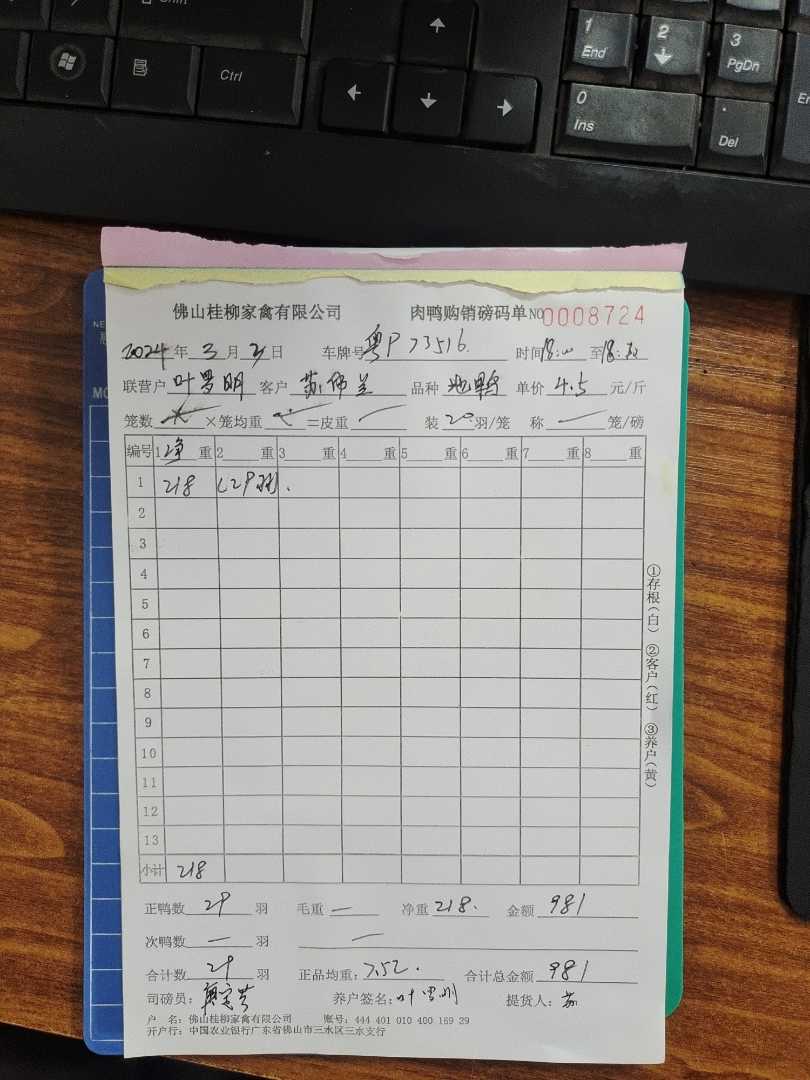 Shin
Ctrl
1 End
2
3 PgDn
0 Ins
. Del
佛山桂柳家禽有限公司 肉鸭购销磅码单 NO 0008724
2024 年 3 月 3 日 车牌号 粤P73516 时间 至
联营户 叶 明 客户 苏伟兰 品种 鸭 单价 4.5 元/斤
笼数 ×笼均重 =皮重 一 装 20 羽/笼 称 一 笼/磅
编号 1 净 重 2 重 3 重 4 重 5 重 6 重 7 重 8 重
1 218 (29羽).
2
3
4
5
6
7
8
9
10
11
12
13
小计 218
正鸭数 29 羽 毛重 一 净重 218. 金额 981
次鸭数 一 羽 一
合计数 29 羽 正品均重: 7.52. 合计总金额 981
司磅员: 养户签名: 叶 明 提货人: 苏
户 名: 佛山桂柳家禽有限公司 账号: 444 401 010 400 169 29
开户行: 中国农业银行广东省佛山市三水区三水支行
①存根(白) ②客户(红) ③养户(黄)